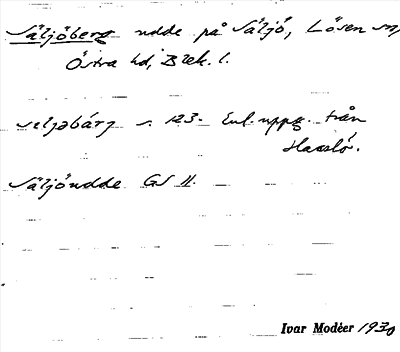 Säljöberg udde på Säljö, Lösen sn,
Östra hd, Blek. l.
s. 123. Enl. uppg. från
Hasslö.
Säljöudde GS 11.
Ivar Modéer 1930